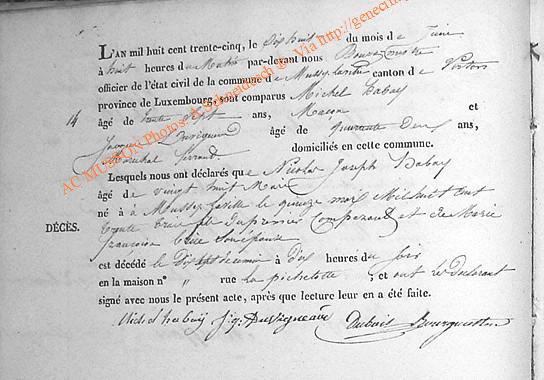 L'AN mil huit cent trente-cinq, le Dix huit du mois de Juin
à huit heures du Matin par-devant nous Bourguestre
officier de l'état civil de la commune de Mussy la ville canton de Virton
province de Luxembourg, sont comparus Michel habay
14 âgé de trente sept ans, Maçon et
Duvigneau âgé de quarante Deux ans,
Marechal ferrand domiciliés en cette commune.
Lesquels nous ont déclarés que Nicolas Joseph habay
âgé de vingt huit Mois
né à Mussy la ville le quinze Mil huit cent
DÉCÈS. trente fils du premier Comparant et de Marie
françoise son épouse
est décédé le Dix à dix heures du soir
en la maison n° " rue la pichelotte ; et ont les Declarant
signé avec nous le présent acte, après que lecture leur en a été faite.
Michel habay J. J. Duvigneaux Dubois Bourguestre
AC MUSSON Photos: A. Schneidesch ® Via http://genecinq